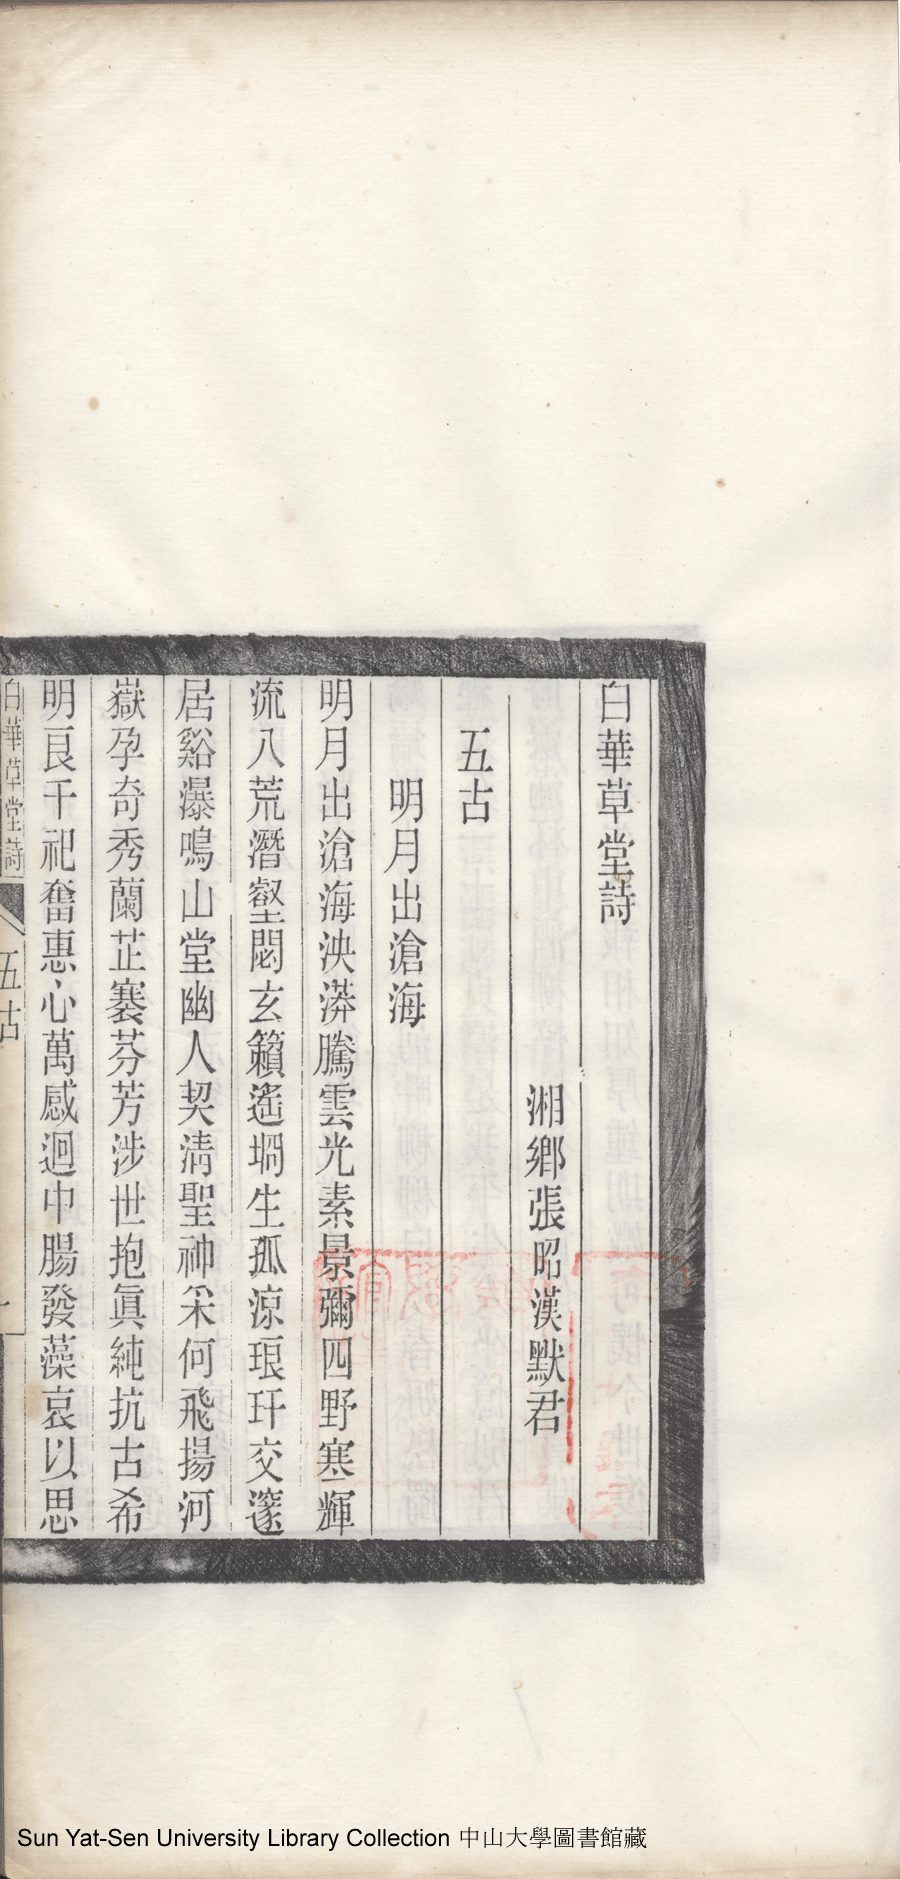 白華草堂詩
湘鄉張昭漢默君
五古
明月出滄海
明月出滄海泱漭騰雲光素景彌四野寒輝
流八荒潛壑閟玄籟遙堨生孤涼琅玕交邃
居谿瀑鳴山堂幽人契清聖神采何飛揚河
嶽孕奇秀蘭芷褰芬芳涉世抱眞純抗古希
明良千祀奮惠心萬感迴中腸發藻哀以思
白華草堂詩
五古
一
Sun Yat-Sen University Library Collection 中山大學圖書館藏